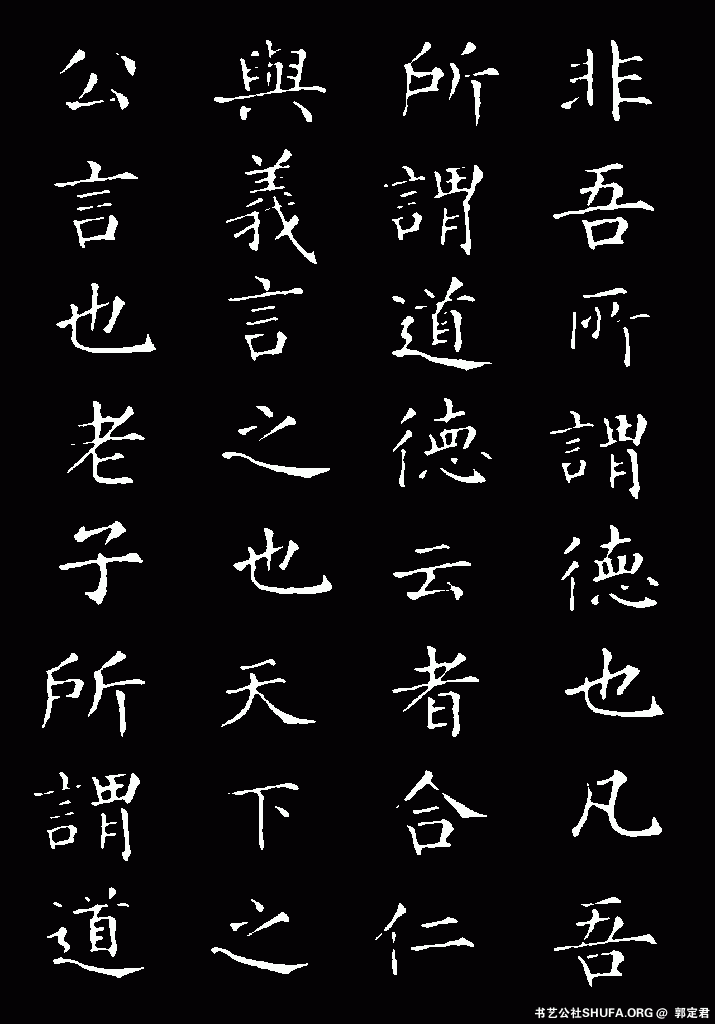 非吾所謂德也凡吾
所謂道德云者合仁
與義言之也天下之
公言也老子所謂道
书艺公社SHUFA.ORG @ 郭定君